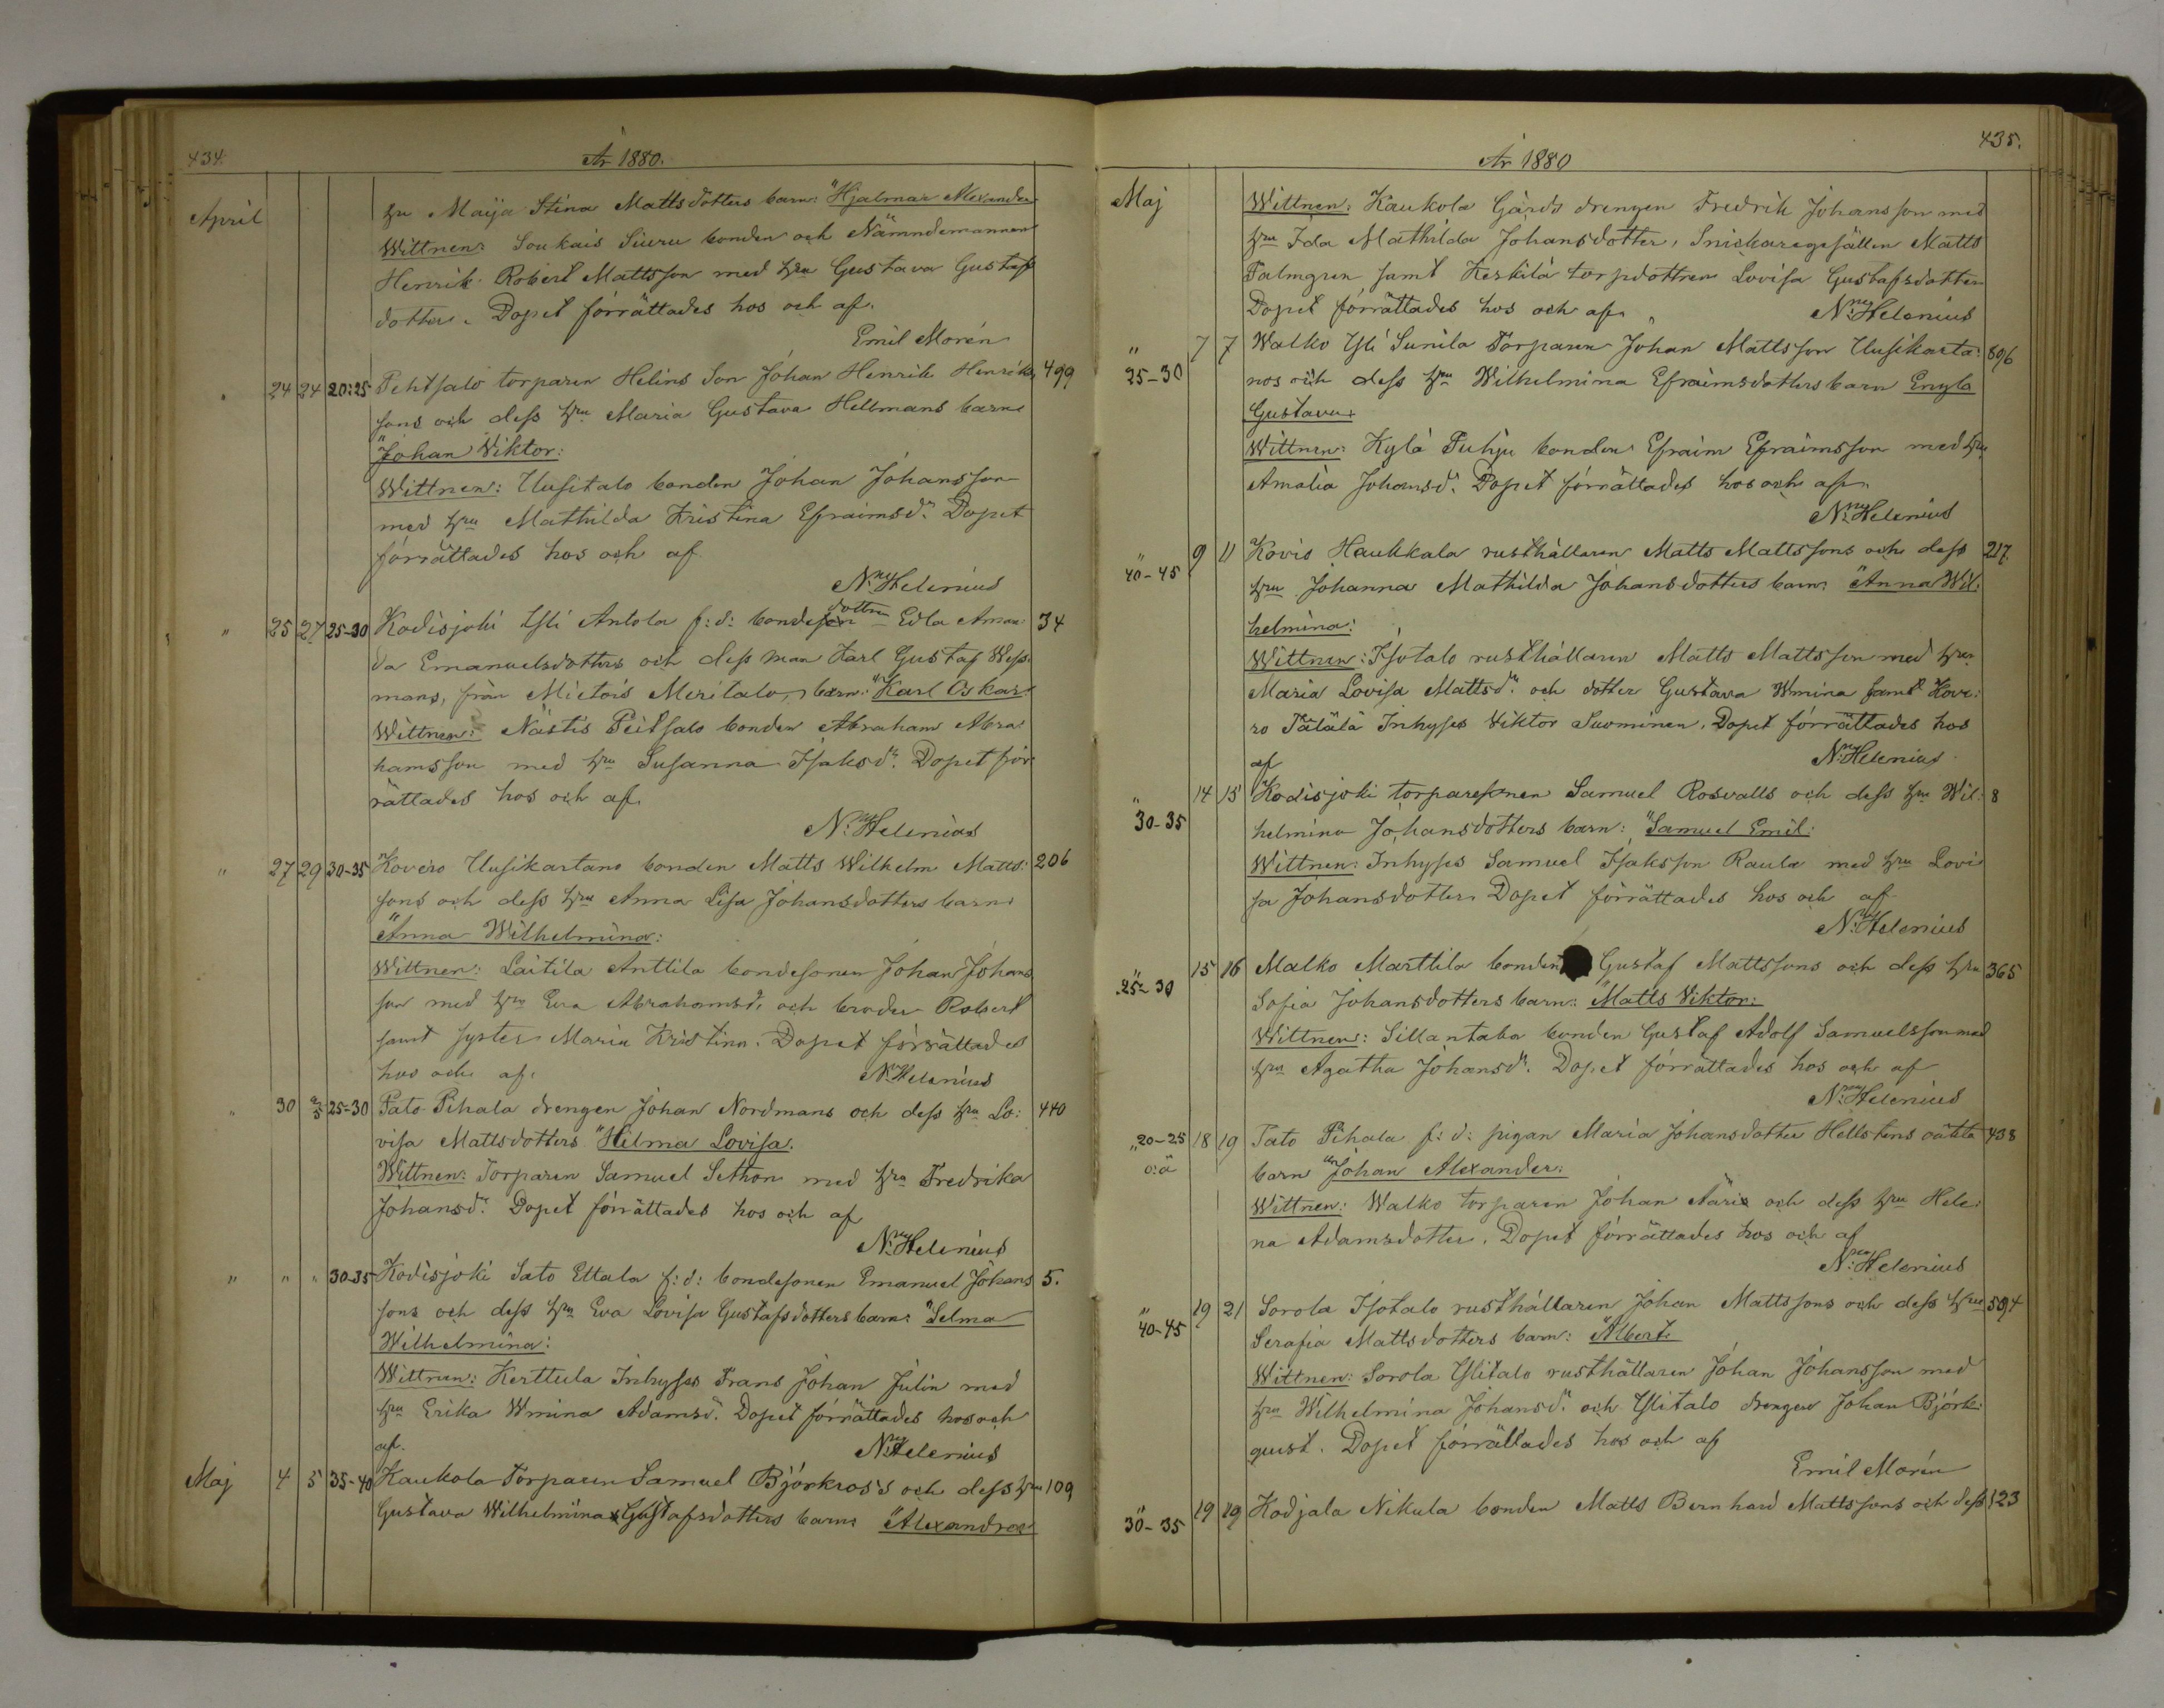 434.
År 1880.
April
hu Maija Stina Mattsdotters barn: "Hjalmar Alexander
Wittnen: Soukais Siuru bonden och Nämndemannen
Henrik Robert Mattsson med hru Gustava Gustafs
dotter. Dopet förrättades hos och af.
Emil Morén
" 24 24 20:25 Pehtsalo torparen Helins Son Johan Henrik Henriks 499
sons och dess hru Maria Gustava Hellmans barn
"Johan Viktor:
Wittnen: Uusitalo bonden Johan Johansson
med hru Mathilda Kristina Efraimsdr. Dopet
förrättades hos och af
N:ny Helenius
" 25 27 25-30 Kodisjoki Yli Antola f:d: bondedottren Edla Aman: 34
da Emanuelsdotters och dess man Karl Gustaf Wess
mans, från Mietois Meritalo, barn: "Karl Oskar:
Wittnen: Nästis Peitsalo bonden Abraham Abra:
hamsson med hru Susanna Isaksdr. Dopet för
rättades hos och af.
N:ny Helenius
" 27 29 30-35 Kovero Uusikartano bonden Matts Wilhelm Matts: 206
sons och dess hru Anna Lisa Johansdotters barn
"Anna Wilhelmina:
Wittnen: Laitila Anttila bondesonen Johan Johans
son med hru Eva Abrahamsd. och broder Robert
samt syster Maria Kristina. Dopet förrättades
hos och af.
N:ny Helenius
" 30 2/5 25-30 Pato Pihala drengen Johan Nordmans och dess hru Lo: 440
visa Mattsdotters "Hilma Lovisa.
Wittnen: Torparen Samuel Sethon med hru Fredrika
Johansdr. Dopet förrättades hos och af
N:ny Helenius
" " " 30-35 Kodisjoki Sato Ettala f:d: bondesonen Emanuel Johans 5.
sons och dess hru Eva Lovisa Gustafsdotters barn: "Selma
Wilhelmina:
Wittnen: Kerttula Inhyses Frans Johan Julin med
hru Erika Wmina Adamsd. Dopet förrättades hos och
af.
N:ny Helenius
Maj 4 5 35-40 Kaukola Torparen Samuel Björkross och dess hru 109
Gustava Wilhelmina Gustafsdotters barn: "Alexandra
435.
År 1880
Maj
Wittnen: Kaukola Gårds drengen Fredrik Johansson med
hru Ida Mathilda Johansdotter, Snickaregesällen Matts
Palmgren samt Keskilä torpdottren Lovisa Gustafsdotter
Dopet förrättades hos och af.
N:ny Helenius
" 25-30 7 7 Walko Yli Sunila Torparen Johan Mattsson Uusikarta: 896
nos och dess hru Wilhelmina Efraimsdotters barn Engla
Gustava:
Wittnen: Kylä Puhju bonden Efraim Efraimsson med hru
Amalia Johansd. Dopet förrättades hos och af.
N:ny Helenius
" 40-45 9 11 Kovis Haukkala rusthållaren Matts Mattssons och dess 217
hru Johanna Mathilda Johansdotters barn: "Anna Wil:
helmina:
Wittnen: Isotalo rusthållaren Matts Mattsson med hru
Maria Lovisa Mattsdr. och dotter Gustava Wmina samt Kove:
ro Tälälä Inhyses Viktor Suominen, Dopet förrättades hos
af
N:ny Helenius
" 30-35 14 15 Kodisjoki torparesonen Samuel Rosvalls och dess hru Wil: 8
helmina Johansdotters barn: "Samuel Emil:
Wittnen: Inhyses Samuel Isaksson Raula med hru Lovi
sa Johansdotter Dopet förrättades hos och af
N:ny Helenius
" 25-30 15 16 Malko Marttila bonden Gustaf Mattssons och dess hru 365
Sofia Johansdotters barn: "Matts Viktor:
Wittnen: Sillantaka bonden Gustaf Adolf Samuelsson med
hru Agatha Johansdr. Dopet förrättades hos och af
N:ny Helenius
" 20-25 o:ä 18 19 Tato Pihala f:d: pigan Maria Johansdotter Hellstens oäkta 438
barn "Johan Alexander:
Wittnen: Walko torparen Johan Aäris och dess hru Hele:
na Adamsdotter. Dopet förrättades hos och af
N:ny Helenius
" 40-45 19 21 Sorola Isotalo rusthållaren Johan Mattssons och dess hru 594
Serafia Mattsdotters barn: "Albert:
Wittnen: Sorola Ylitalo rusthållaren Johan Johansson med
hru Wilhelmina Johansd. och Ylitalo drengen Johan Björk:
quist. Dopet förrättades hos och af
Emil Morén
" 30-35 19 19 Kodjala Nikula bonden Matts Bernhard Mattssons och dess 123